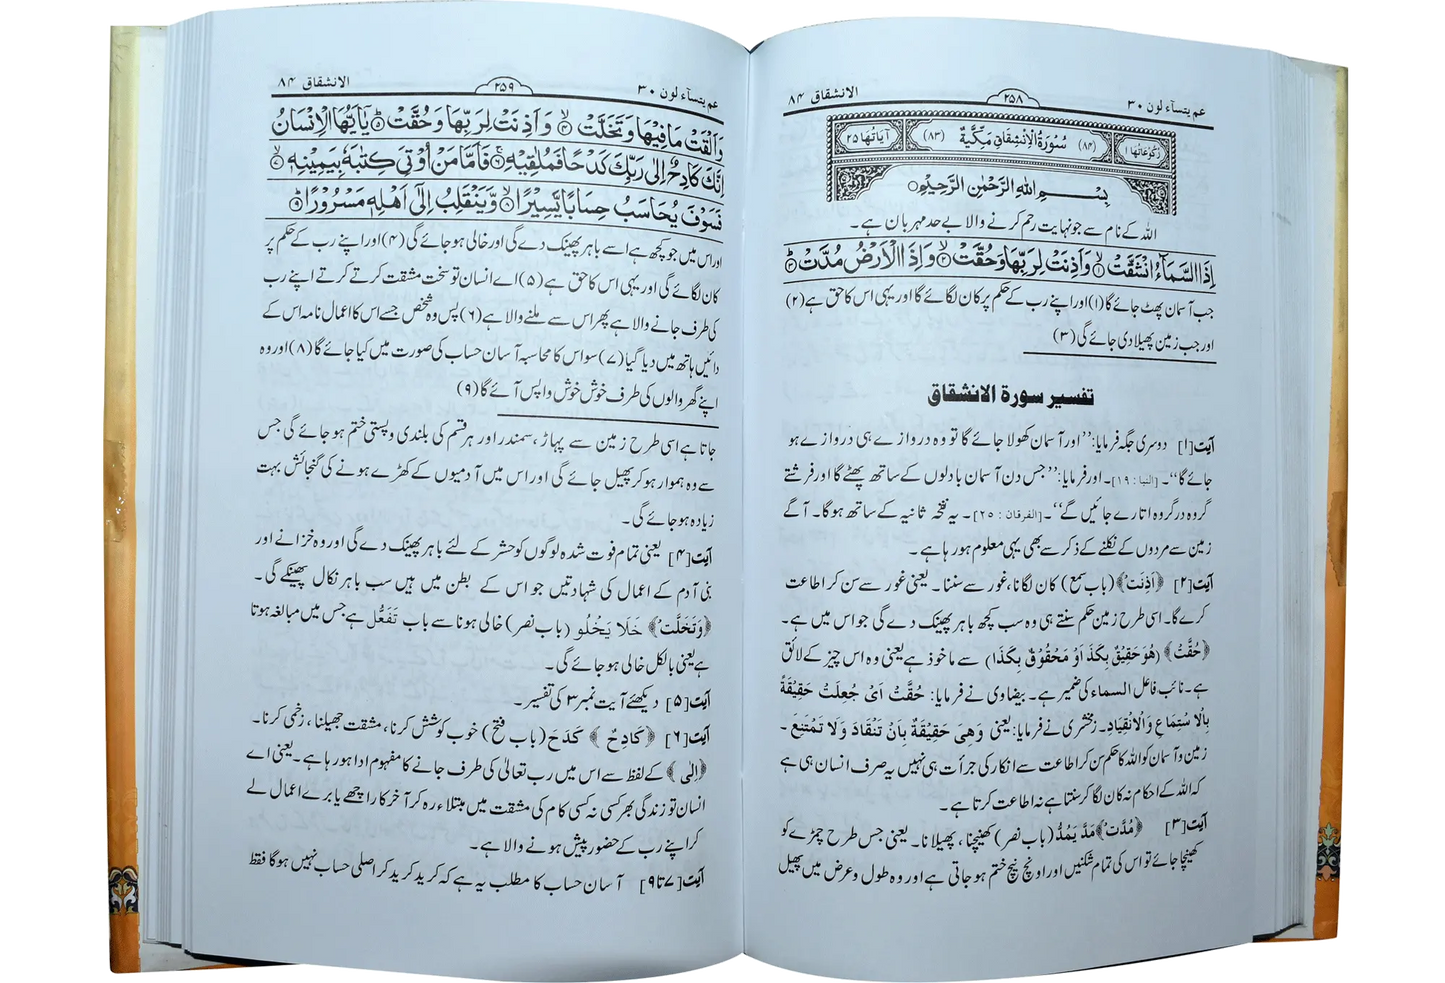 عم يتسآء لون ۳۰
۲۵۸
الانشقاق ۸۴
رُكُوْعَاتُهَا ۱
(۸۴) سُوْرَةُ الْاِنْشِقَاقِ مَكِّيَّةٌ (۸۳)
اٰيَاتُهَا ۲۵
بِسْمِ اللهِ الرَّحْمٰنِ الرَّحِيْمِ
اللہ کے نام سے جو نہایت رحم کرنے والا بے حد مہربان ہے۔
اِذَا السَّمَآءُ انْشَقَّتْ ۱ وَاَذِنَتْ لِرَبِّهَا وَحُقَّتْ ۲ وَاِذَا الْاَرْضُ مُدَّتْ ۳
جب آسمان پھٹ جائے گا (۱) اور اپنے رب کے حکم پر کان لگائے گا اور یہی اس کا حق ہے (۲)
اور جب زمین پھیلا دی جائے گی (۳)
تفسیر سورۃ الانشقاق
آیت [۱] دوسری جگہ فرمایا: ’’اور آسمان کھولا جائے گا تو وہ دروازے ہی دروازے ہو
جائے گا‘‘۔ [النبا : ۱۹]۔ اور فرمایا: ’’جس دن آسمان بادلوں کے ساتھ پھٹے گا اور فرشتے
گروہ در گروہ اتارے جائیں گے‘‘۔ [الفرقان : ۲۵]۔ یہ نفخہ ثانیہ کے ساتھ ہوگا۔ آگے
زمین سے مردوں کے نکلنے کے ذکر سے بھی یہی معلوم ہو رہا ہے۔
آیت [۲] ﴿اَذِنَتْ﴾ (باب سمع) کان لگانا، غور سے سننا۔ یعنی غور سے سن کر اطاعت
کرے گا۔ اسی طرح زمین حکم سنتے ہی وہ سب کچھ باہر پھینک دے گی جو اس میں ہے۔
﴿حُقَّتْ﴾ (هُوَ حَقِيْقٌ بِكَذَا اَوْ مَحْقُوْقٌ بِكَذَا) سے ماخوذ ہے یعنی وہ اس چیز کے لائق
ہے۔ نائب فاعل السماء کی ضمیر ہے۔ بیضاوی نے فرمایا: حُقَّتْ اَیْ جُعِلَتْ حَقِيْقَةً
بِالْاِسْتِمَاعِ وَالْاِنْقِيَادِ۔ زمخشری نے فرمایا: یعنی وَهِىَ حَقِيْقَةٌ بِاَنْ تَنْقَادَ وَلَا تَمْتَنِعَ ۔
زمین و آسمان کو اللہ کا حکم سن کر اطاعت سے انکار کی جرأت ہی نہیں یہ صرف انسان ہی ہے
کہ اللہ کے احکام نہ کان لگا کر سنتا ہے نہ اطاعت کرتا ہے۔
آیت [۳] ﴿مُدَّتْ﴾ مَدَّ يَمُدُّ (باب نصر) کھینچنا، پھیلانا۔ یعنی جس طرح چمڑے کو
کھینچا جائے تو اس کی تمام شکنیں اور اونچ نیچ ختم ہو جاتی ہے اور وہ طول و عرض میں پھیل
عم يتسآء لون ۳۰
۲۵۹
الانشقاق ۸۴
وَاَلْقَتْ مَا فِيْهَا وَتَخَلَّتْ ۴ وَاَذِنَتْ لِرَبِّهَا وَحُقَّتْ ۵ يٰاَيُّهَا الْاِنْسَانُ
اِنَّكَ كَادِحٌ اِلٰى رَبِّكَ كَدْحًا فَمُلٰقِيْهِ ۶ فَاَمَّا مَنْ اُوْتِيَ كِتٰبَهٗ بِيَمِيْنِهٖ ۷
فَسَوْفَ يُحَاسَبُ حِسَابًا يَّسِيْرًا ۸ وَّيَنْقَلِبُ اِلٰٓى اَهْلِهٖ مَسْرُوْرًا ۹
اور اس میں جو کچھ ہے اسے باہر پھینک دے گی اور خالی ہو جائے گی (۴) اور اپنے رب کے حکم پر
کان لگائے گی اور یہی اس کا حق ہے (۵) اے انسان تو سخت مشقت کرتے کرتے اپنے رب
کی طرف جانے والا ہے پھر اس سے ملنے والا ہے (۶) پس وہ شخص جسے اس کا اعمال نامہ اس کے
دائیں ہاتھ میں دیا گیا (۷) سو اس کا محاسبہ آسان حساب کی صورت میں کیا جائے گا (۸) اور وہ
اپنے گھر والوں کی طرف خوش خوش واپس آئے گا (۹)
جاتا ہے اسی طرح زمین سے پہاڑ، سمندر اور ہر قسم کی بلندی و پستی ختم ہو جائے گی جس
سے وہ ہموار ہو کر پھیل جائے گی اور اس میں آدمیوں کے کھڑے ہونے کی گنجائش بہت
زیادہ ہو جائے گی۔
آیت [۴] یعنی تمام فوت شدہ لوگوں کو حشر کے لئے باہر پھینک دے گی اور وہ خزانے اور
بنی آدم کے اعمال کی شہادتیں جو اس کے بطن میں ہیں سب باہر نکال پھینکے گی۔
﴿وَتَخَلَّتْ﴾ خَلَا يَخْلُو (باب نصر) خالی ہونا سے باب تَفَعُّل ہے جس میں مبالغہ ہوتا
ہے یعنی بالکل خالی ہو جائے گی۔
آیت [۵] دیکھئے آیت نمبر ۳ کی تفسیر۔
آیت [۶] ﴿كَادِحٌ﴾ كَدَحَ (باب فتح) خوب کوشش کرنا، مشقت جھیلنا، زخمی کرنا۔
﴿اِلٰى﴾ کے لفظ سے اس میں رب تعالیٰ کی طرف جانے کا مفہوم ادا ہو رہا ہے۔ یعنی اے
انسان تو زندگی بھر کسی نہ کسی کام کی مشقت میں مبتلاء رہ کر آخر کار اچھے یا برے اعمال لے
کر اپنے رب کے حضور پیش ہونے والا ہے۔
آیت [۷ تا ۹] آسان حساب کا مطلب یہ ہے کہ کرید کرید کر اصلی حساب نہیں ہوگا فقط